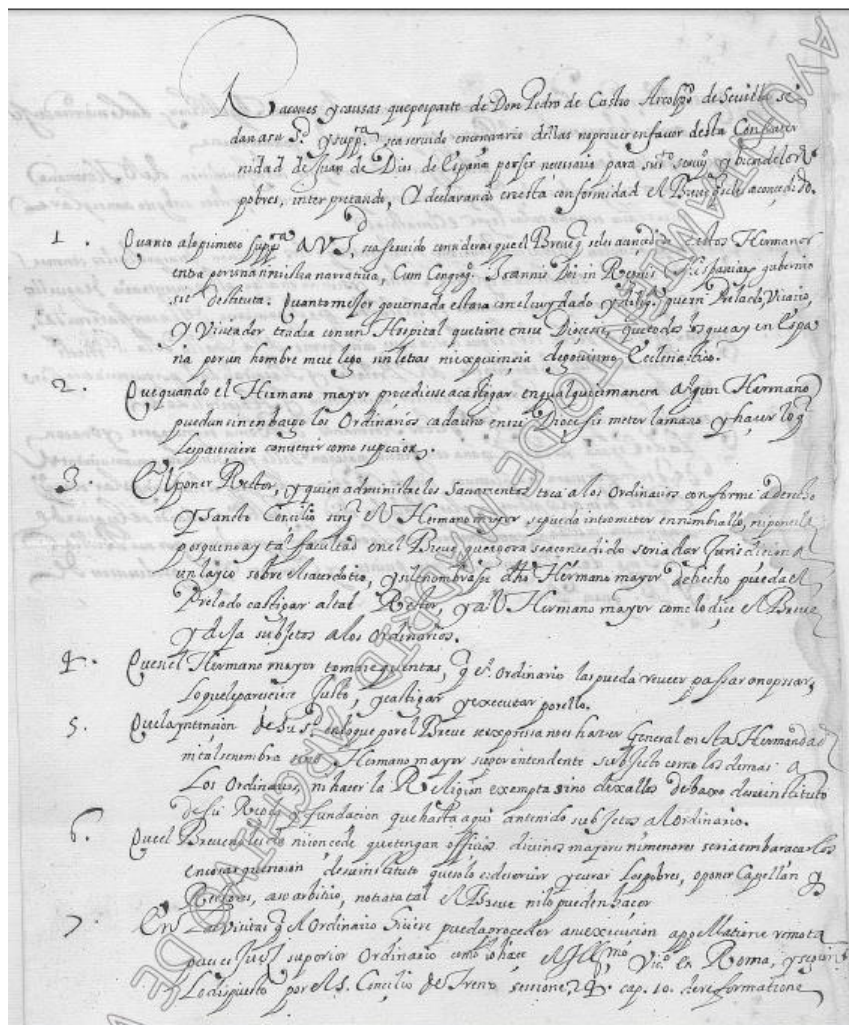 Raçones y causas que por parte de Don Pedro de Castro Arçobpo de Sevilla se
dan a su Sd. y suppca sea servido en contrario dellas no proveer en favor desta Confrater
nidad de Juan de Dios de España por ser necesario para su servio y bien de los
pobres, interpretando, O declarando en esta conformidad el Breve q se les a concedido.
1. Quanto a lo primero suppca A V S, sea servido considerar que el Breve q se les a concedido a estos Hermanos
entra por una siniestra narrativa, Cum Congreg. Joannis Dei in Regnis Hispaniarum gubernio
sit destituta. Quanto mejor governada estara con el cuydado y dilig. que un Prelado, Vicario,
y Visitador tendra con un Hospital que tiene en su Diocesis, que todos los que ay en Espa
ña por un hombre mere lego sin letras ni experiencia de govierno Ecclesiastico.
2. Que quando el Hermano mayor procediesse a castigar en qualquier manera algun Hermano
puedan sin enbargo los Ordinarios cada uno en su Diocesis meter la mano y hacer lo q
les paresciere convenir como superior.
3. El poner Rector, y quien administre los Sacramentos toca a los Ordinarios conforme a derecho
y Sancto Concilio sin q el Hermano mayor se pueda intrometer en nombrallo, ni ponello
porque no ay tal facultad en el Breve, que agora se a concedido seria dar Jurisdicion a
un layco sobre el sacerdocio, y si le nombrase dho Hermano mayor de hecho pueda el
Prelado castigar al tal Rector, y al Hermano mayor como lo dice el Breve
y dexa subjetos a los Ordinarios.
4. Que si el Hermano mayor tomare quentas, q el Ordinario las pueda reveer passar o no passar,
lo que le paresciere Justo, y castigar y executar por ello.
5. Que la yntencion de Su Sd. en lo que por el Breve se expressa no es haver General en esta Hermandad
ni tal se nombra sino Hermano mayor superintendente subjecto como los demas a
Los Ordinarios, ni hacer la Religion exempta sino dexalles debaxo de su instituto
de su Regla y fundacion que hasta aqui an tenido subjetos al Ordinario.
6. Que el Breve no les da ni concede que tengan officios divinos mayores ni menores seria embaraçarlos
en cosas que no son de su instituto que solo es de servir y curar los pobres, o poner Capellan y
Rectores, a su arbitrio, no trata tal el Breve ni lo pueden hacer
7. En las Visitas q el Ordinario hiciere pueda proceder a execucion appellatione remota
pues es Juez superior Ordinario como lo hace el Illmo Vico. en Roma, y segun
Lo dispuesto por el S. Concilio de Trento sessione 24. cap. 10. de reformatione
AYUNTAMIENTO DE MADRID ARCHIVO DE